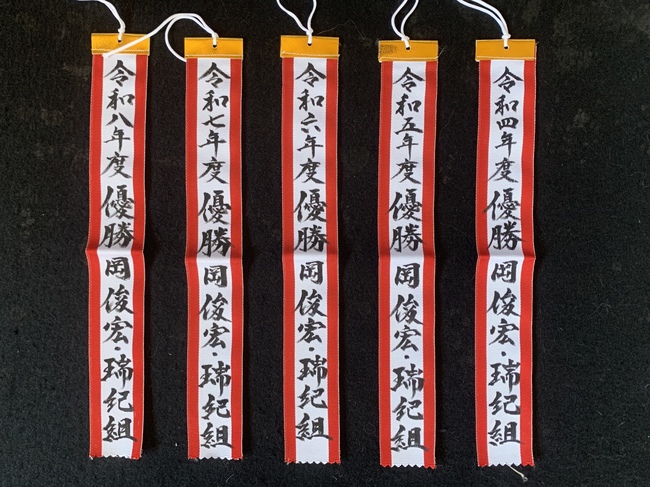 令和四年度優勝岡俊宏・瑞紀組
令和五年度優勝岡俊宏・瑞紀組
令和六年度優勝岡俊宏・瑞紀組
令和七年度優勝岡俊宏・瑞紀組
令和八年度優勝岡俊宏・瑞紀組